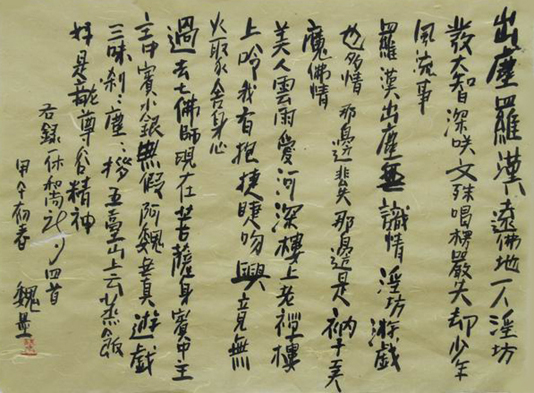 出塵羅漢遠佛地一入淫坊
發大智深咲文殊唱楞嚴失却少年
風流事
羅漢出塵無識情淫坊游戲
也多情那邊非矣那邊是衲子工夫
魔佛情
美人雲雨愛河深樓上老禪樓
上吟我有抱睫吻興竟無
火聚舍身心
過去七佛師現在菩薩身賓中主
主中賓水銀無假阿魏無真遊戲
三昧刹々塵々 五臺山上云蒸飯
好是精神
右錄休和尚詩四首
甲午初春 魏